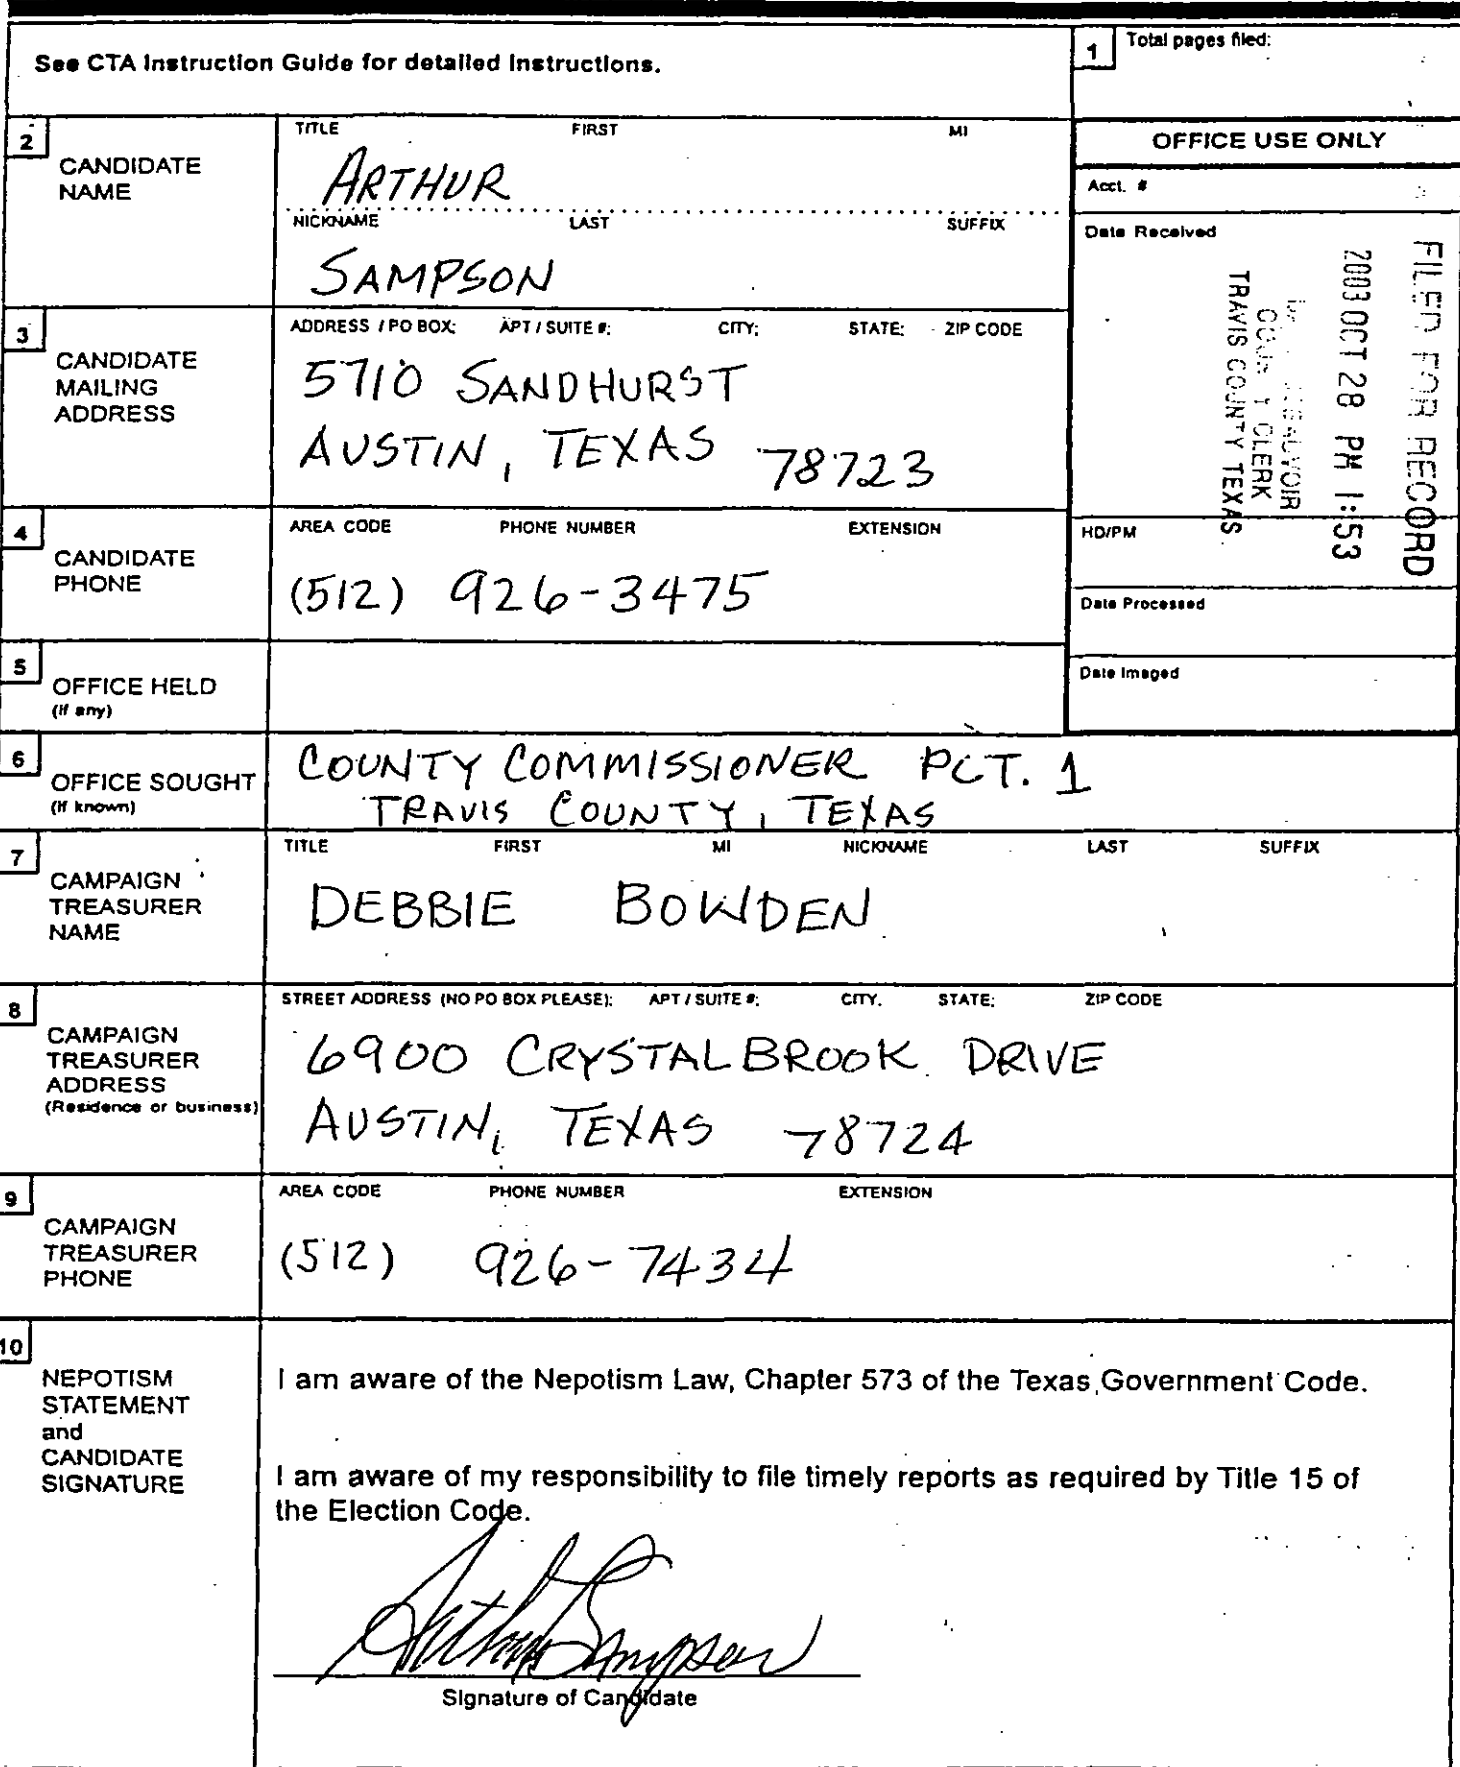 See CTA Instruction Guide for detailed instructions.
1 Total pages filed:
2 CANDIDATE NAME
TITLE FIRST MI
ARTHUR
NICKNAME LAST SUFFIX
SAMPSON
OFFICE USE ONLY
Acct. #
Date Received
FILED FOR RECORD
2003 OCT 28 PM 1:53
CLERK
TRAVIS COUNTY TEXAS
HD/PM
Date Processed
Date Imaged
3 CANDIDATE MAILING ADDRESS
ADDRESS / PO BOX; APT / SUITE #; CITY; STATE; ZIP CODE
5710 SANDHURST
AUSTIN, TEXAS 78723
4 CANDIDATE PHONE
AREA CODE PHONE NUMBER EXTENSION
(512) 926-3475
5 OFFICE HELD
(if any)
6 OFFICE SOUGHT
(if known)
COUNTY COMMISSIONER PCT. 1
TRAVIS COUNTY, TEXAS
7 CAMPAIGN TREASURER NAME
TITLE FIRST MI NICKNAME LAST SUFFIX
DEBBIE BOWDEN
8 CAMPAIGN TREASURER ADDRESS
(Residence or business)
STREET ADDRESS (NO PO BOX PLEASE); APT / SUITE #; CITY. STATE; ZIP CODE
6900 CRYSTALBROOK DRIVE
AUSTIN, TEXAS 78724
9 CAMPAIGN TREASURER PHONE
AREA CODE PHONE NUMBER EXTENSION
(512) 926-7434
10 NEPOTISM STATEMENT and CANDIDATE SIGNATURE
I am aware of the Nepotism Law, Chapter 573 of the Texas Government Code.
I am aware of my responsibility to file timely reports as required by Title 15 of
the Election Code.
Arthur Sampson
Signature of Candidate